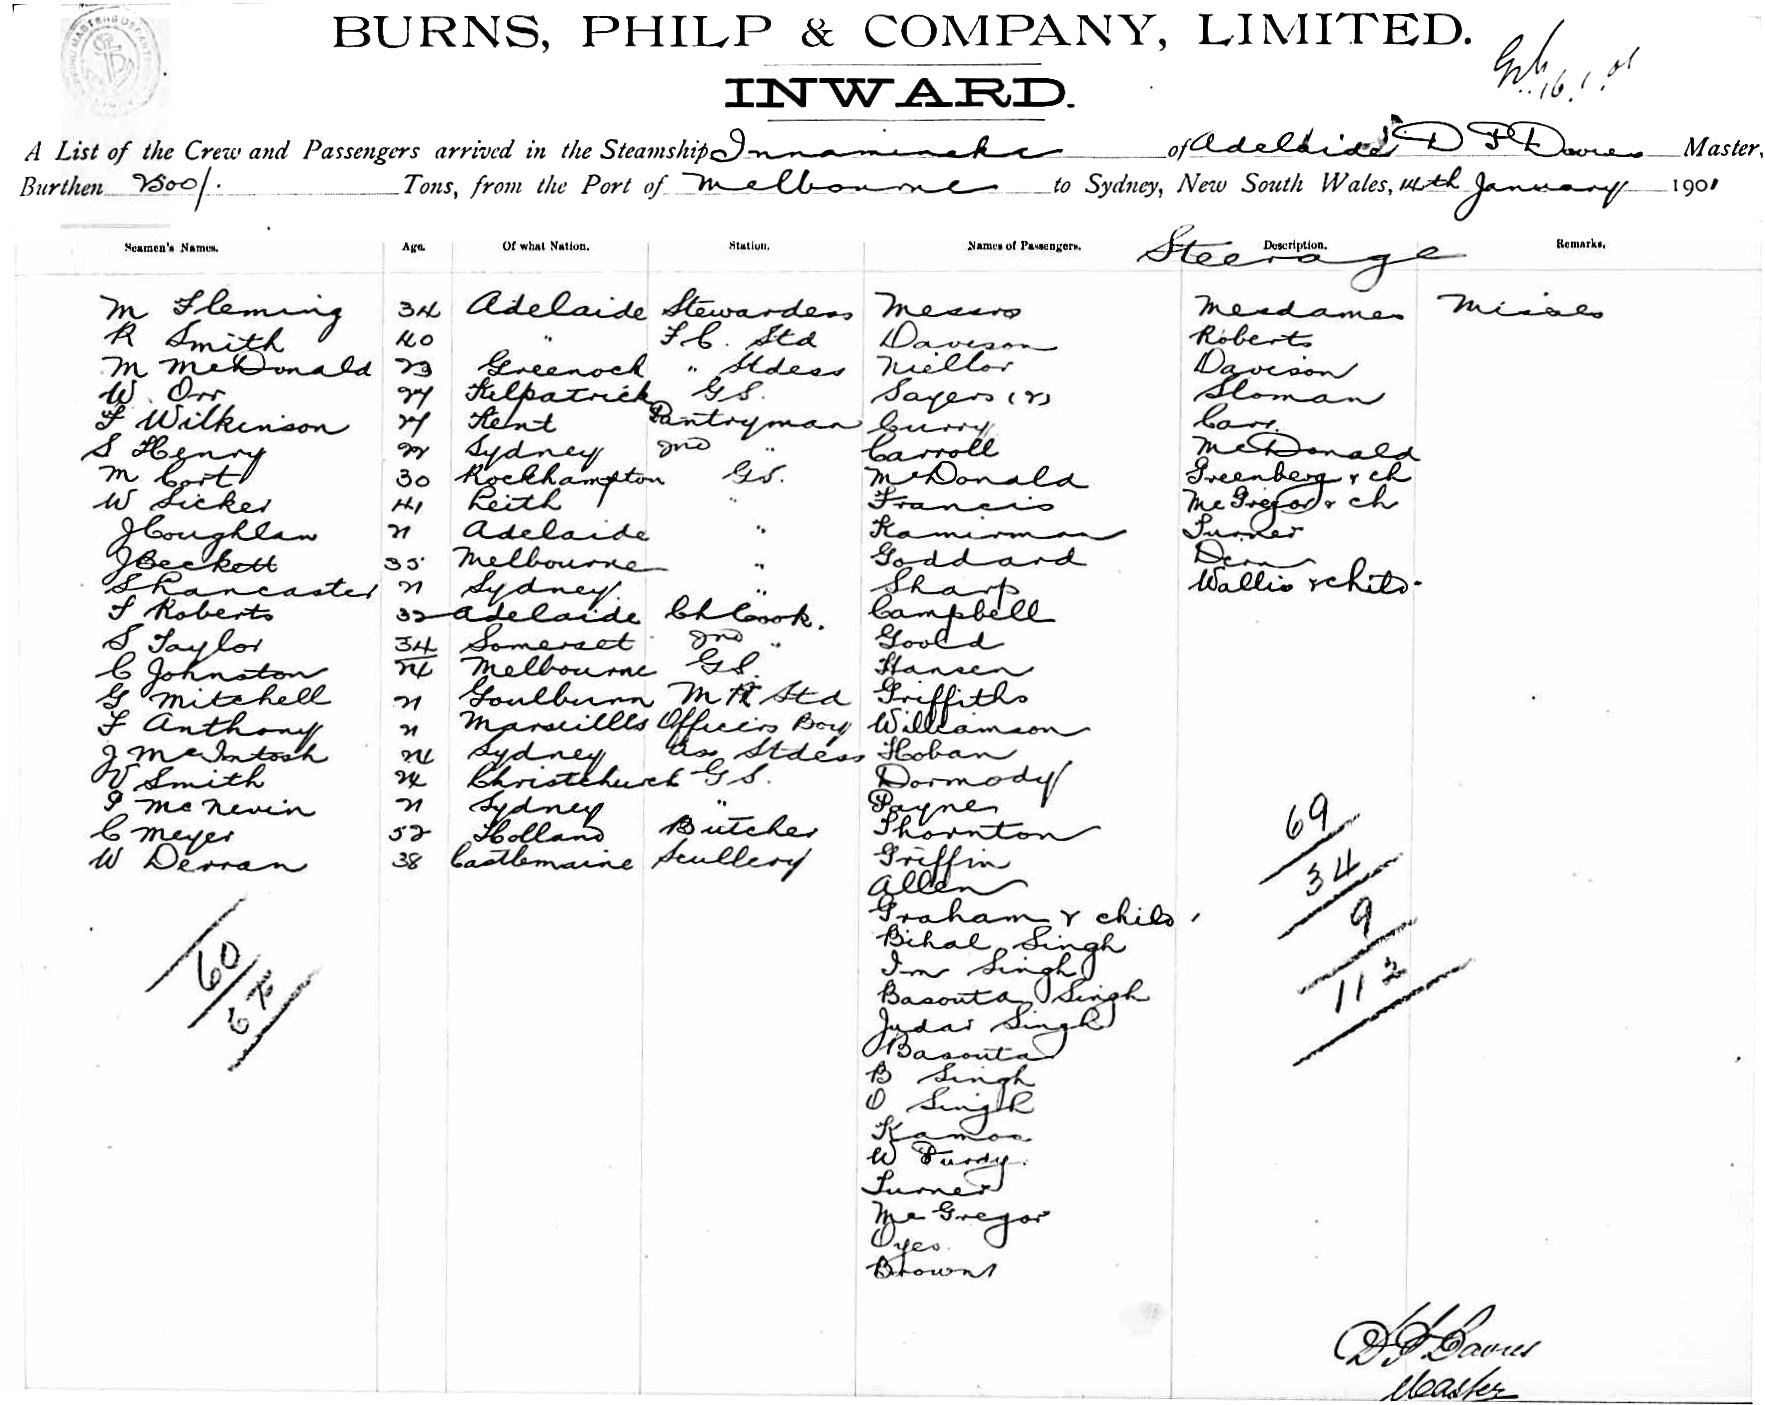 BURNS, PHILP & COMPANY, LIMITED.
INWARD.
16.1.01
A List of the Crew and Passengers arrived in the Steamship Innamincka of Adelaide D F Davies Master,
Burthen 2500/. Tons, from the Port of Melbourne to Sydney, New South Wales, 14th January 1901
Seamen's Names. Age. Of what Nation. Station. Names of Passengers. Steerage Description. Remarks.
M Fleming 34 Adelaide Stewardess Messrs Mesdames Misses
R Smith 40 " F.C. Std Davison Roberts
M McDonald 23 Greenock " Stdess Niellor Davison
W. Orr 27 Kilpatrick G.S. Sayers (2) Sloman
F Wilkinson 27 Kent Pantryman Curry Carr
S Henry 22 Sydney 2nd " Carroll McDonald
M Cort 30 Rockhampton G.S. McDonald Greenberg & ch
W Sicker 41 Leith " Francis McGregor & ch
J Coughlan 21 Adelaide " Kamirman Turner
J Beckett 35 Melbourne " Goddard Dern
S Lancaster 21 Sydney " Sharp Wallis & child.
F Roberts 32 Adelaide Ch Cook. Campbell
S Taylor 34 Somerset 2nd " Goold
C Johnston 24 Melbourne G.S. Hansen
G Mitchell 21 Goulburn M R Std Griffiths
F Anthony 21 Marseilles Officers Boy Williamson
J McIntosh 24 Sydney Ass Stdess Hoban
V Smith 24 Christchurch G S. Dormody
P McNevin 21 Sydney " Payne
C Meyer 52 Holland Butcher Thornton
W Derran 38 Castlemaine Scullery Griffin
Allen
Graham & child
Bihal Singh
Im Singh
Basouta Singh
Judar Singh
Basouta
B Singh
O Singh
Kamoa
W Purdy.
Turner
McGregor
Oyes
Brown
69
34
9
112
60
67
D F Davies
Master